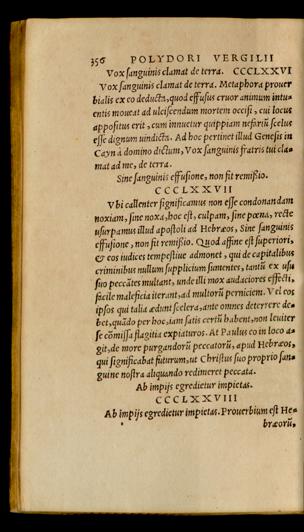 356 POLYDORI VERGILII
Vox sanguinis clamat de terra. CCCLXXVI
Vox sanguinis clamat de terra. Metaphora prouer
bialis ex eo deducta, quod effusus cruor animum intu-
entis moueat ad ulciscendum mortem occisi, cui locus
appositus erit, cum innuetur quippiam nefariū scelus
esse dignum uindicta. Ad hoc pertinet illud Genesis in
Cayn à domino dictum, Vox sanguinis fratris tui cla-
mat ad me, de terra.
Sine sanguinis effusione, non fit remissio.
CCCLXXVII
Vbi callenter significamus non esse condonandam
noxiam, sine noxa, hoc est, culpam, sine pœna, recte
usurpamus illud apostoli ad Hebræos, Sine sanguinis
effusione, non fit remissio. Quod affine est superiori,
& eos iudices tempestiue admonet, qui de capitalibus
criminibus nullum supplicium sumentes, tantū ex usu
suo peccātes multant, unde illi mox audaciores effecti,
facile maleficia iterant, ad multorū perniciem. Vel eos
ipsos qui talia ædunt scelera, ante omnes deterrere de-
bet, quādo per hoc, iam satis certū habent, non leuiter
se cōmissa flagitia expiaturos. At Paulus eo in loco a-
git, de more purgandorū peccatorū, apud Hebræos,
qui significabat futurum, ut Christus suo proprio san-
guine nostra aliquando redimeret peccata.
Ab impijs egredietur impietas.
CCCLXXVIII
Ab impijs egredietur impietas. Prouerbium est He-
bræorū,